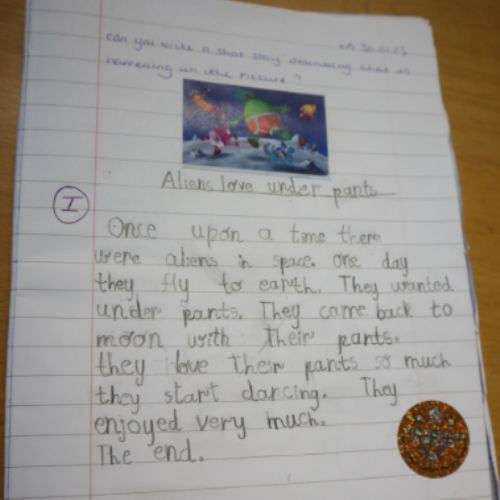 can you write a short story describing what is
happening in the picture?
Aliens love under pants
I
Once upon a time there
were aliens in space. one day
they fly to earth. They wanted
under pants. They came back to
moon with Their pants.
they love Their pants so much
they start dancing. They
enjoyed very much.
The end.